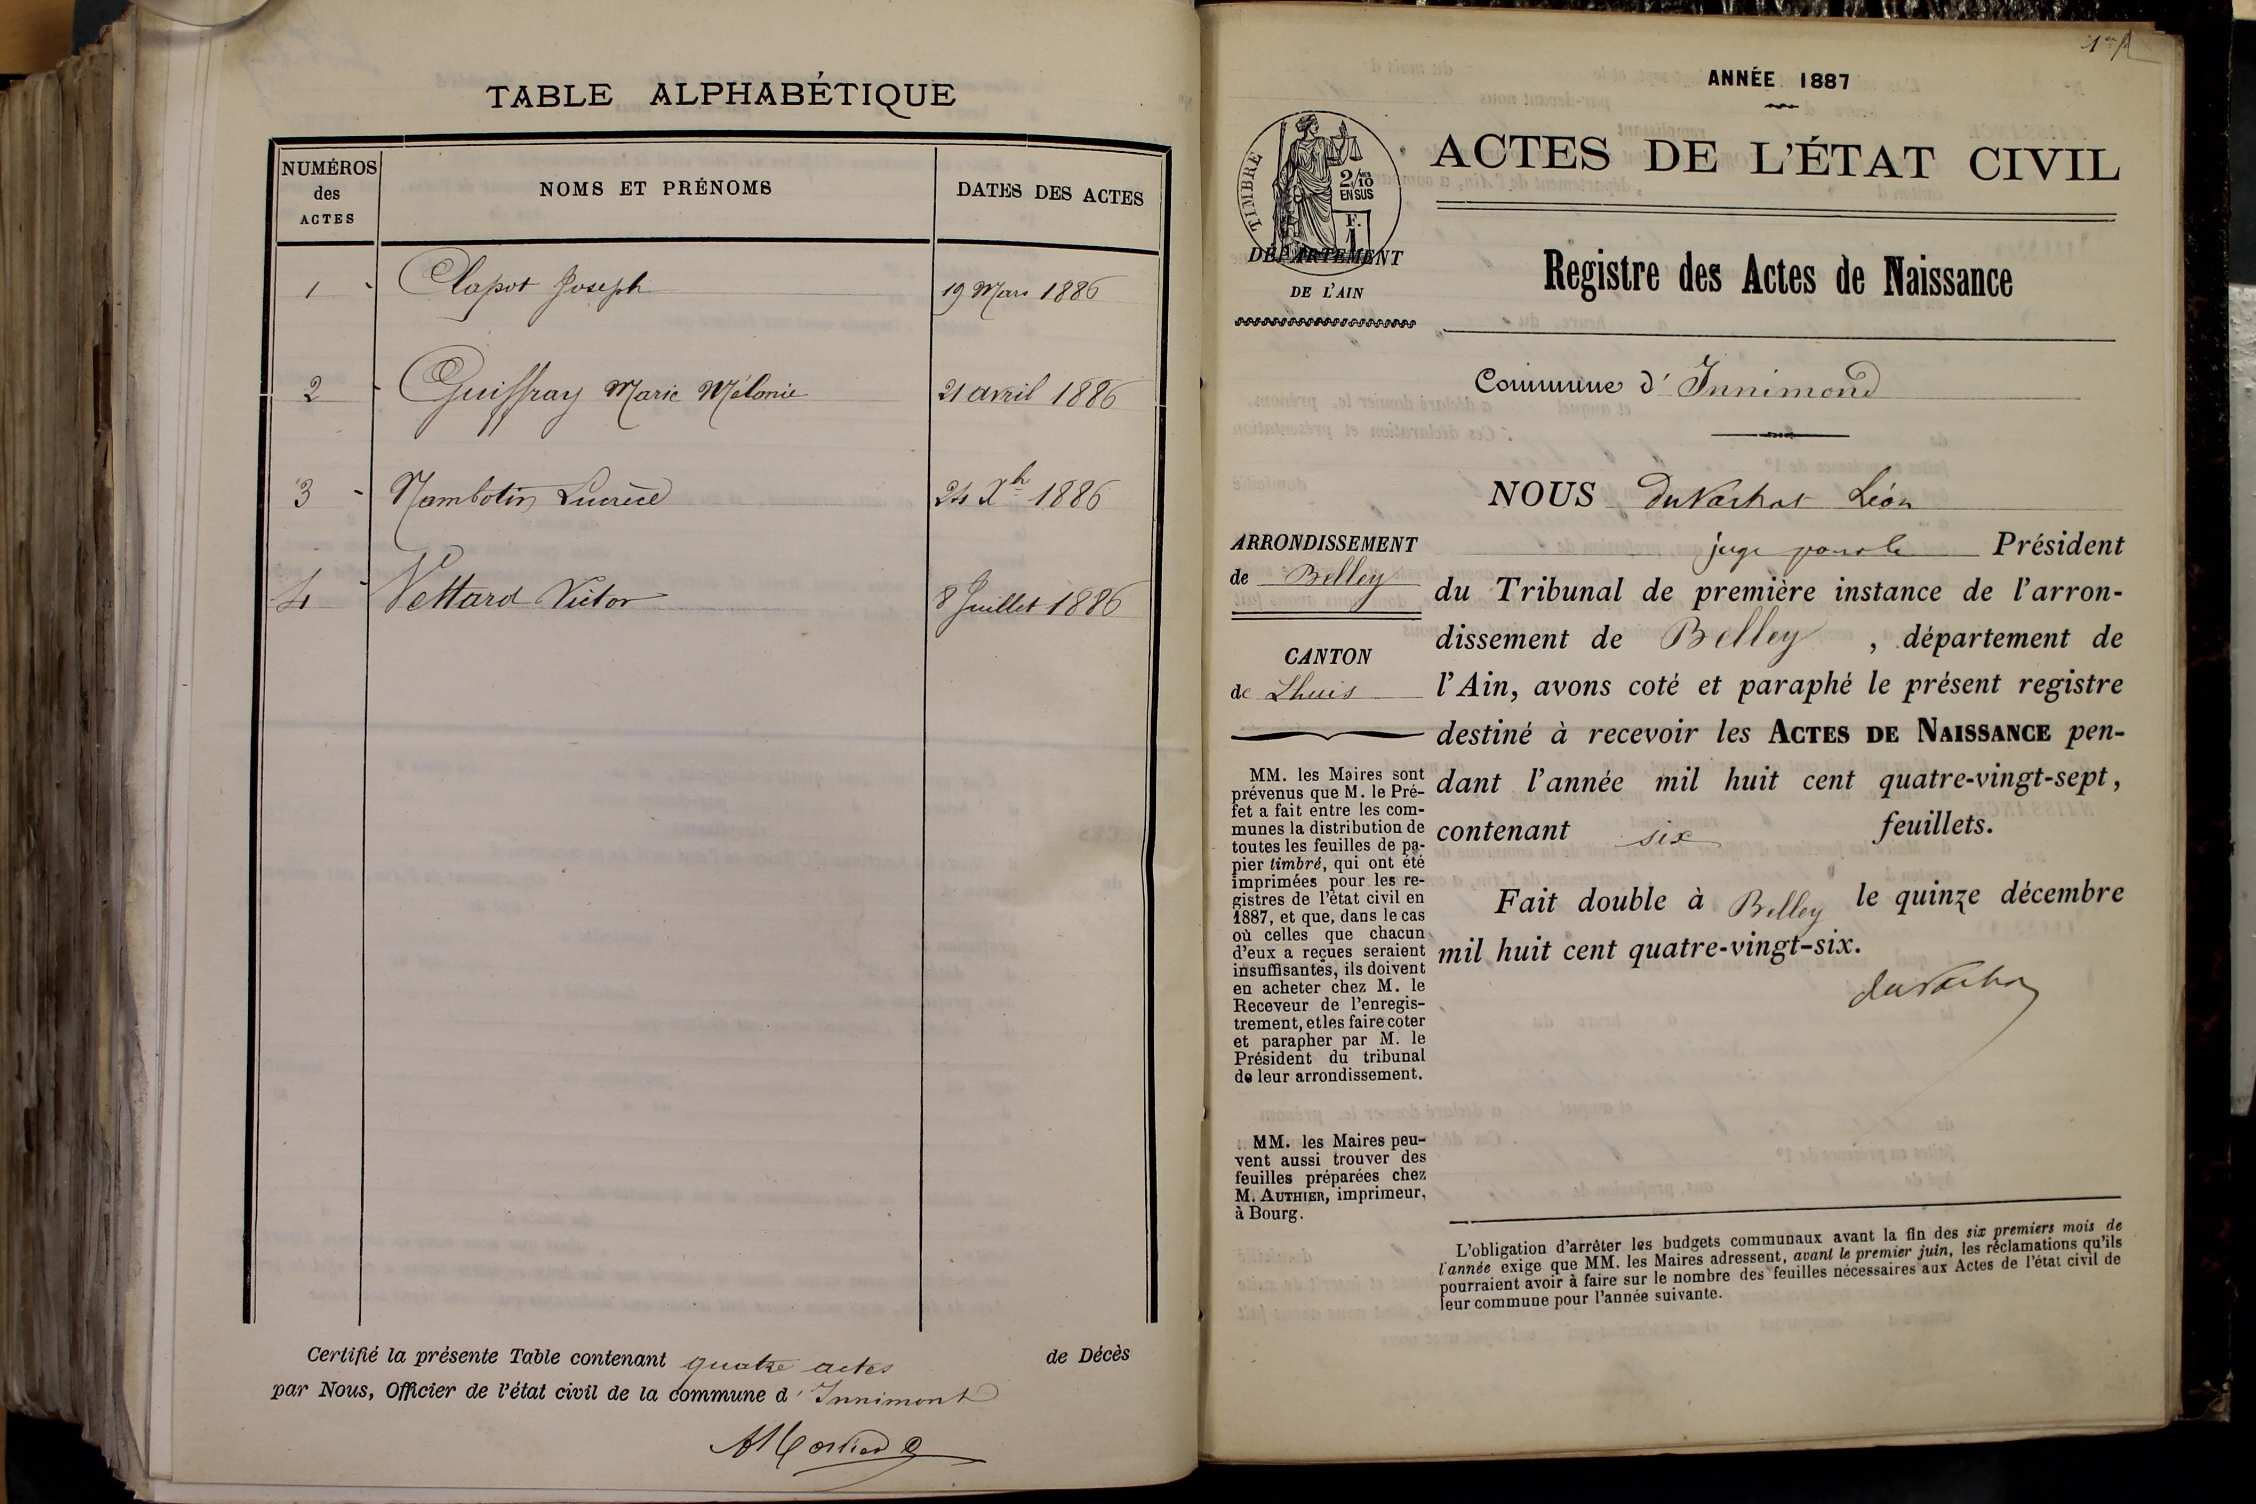 TABLE ALPHABÉTIQUE
NUMÉROS
des
ACTES
NOMS ET PRÉNOMS
DATES DES ACTES
1 Clapot Joseph 19 Mars 1886
2 Guiffray Marie Mélanie 21 avril 1886
3 Nambotin Lucrèce 24 Xbre 1886
4 Vettard Victor 8 Juillet 1886
Certifié la présente Table contenant quatre actes de Décès
par Nous, Officier de l'état civil de la commune d'Innimont
1er
ANNÉE 1887
ACTES DE L'ÉTAT CIVIL
TIMBRE
2/10
EN SUS
F.
1
DÉPARTEMENT
DE L'AIN
Registre des Actes de Naissance
Commune d'Innimond
ARRONDISSEMENT
de Belley
CANTON
de Lhuis
MM. les Maires sont
prévenus que M. le Pré-
fet a fait entre les com-
munes la distribution de
toutes les feuilles de pa-
pier timbré, qui ont été
imprimées pour les re-
gistres de l'état civil en
1887, et que, dans le cas
où celles que chacun
d'eux a reçues seraient
insuffisantes, ils doivent
en acheter chez M. le
Receveur de l'enregis-
trement, et les faire coter
et parapher par M. le
Président du tribunal
de leur arrondissement.
MM. les Maires peu-
vent aussi trouver des
feuilles préparées chez
M. AUTHIER, imprimeur,
à Bourg.
NOUS Léon
juge pour le Président
du Tribunal de première instance de l'arron-
dissement de Belley, département de
l'Ain, avons coté et paraphé le présent registre
destiné à recevoir les ACTES DE NAISSANCE pen-
dant l'année mil huit cent quatre-vingt-sept,
contenant six feuillets.
Fait double à Belley le quinze décembre
mil huit cent quatre-vingt-six.
L'obligation d'arrêter les budgets communaux avant la fin des six premiers mois de
l'année exige que MM. les Maires adressent, avant le premier juin, les réclamations qu'ils
pourraient avoir à faire sur le nombre des feuilles nécessaires aux Actes de l'état civil de
leur commune pour l'année suivante.